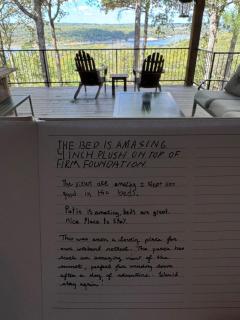 THE BED IS AMAZING
4 INCH PLUSH ON TOP OF
FIRM FOUNDATION.
The views are amazing I slept soo
good in the beds.
Patio is amazing, beds are great.
Nice Place to Stay.
This was such a lovely place for
our weekend retreat. The porch has
such an amazing view of the
sunset, perfect for winding down
after a day of adventure. Would
stay again.